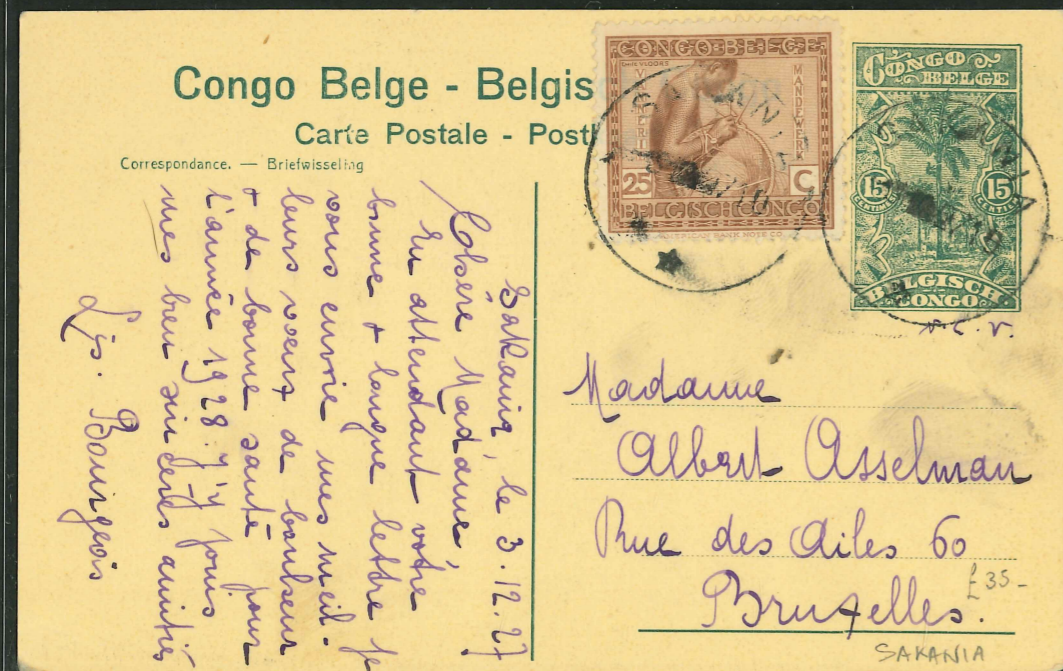 Congo Belge - Belgis
Carte Postale - Post
Correspondance. — Briefwisseling
CONGO BELGE
EMILE VLOORS
VANNERIE
MANDEWERK
25 C
BELGISCH CONGO
AMERICAN BANK NOTE CO
SAKANIA
CONGO
BELGE
15 CENTIMES
15
BELGISCH
CONGO
SAKANIA
Sakania, le 3.12.27
Chère Madame,
En attendant votre
bonne + longue lettre je
vous envoie mes meil-
leurs vœux de bonheur
+ de bonne santé pour
l'année 1928. J'y joins
mes bien sincères amitiés
Ls. Bourgeois
v.C.v.
Madame
Albert Asselman
Rue des Ailes 60
Bruxelles.
£35-
SAKANIA